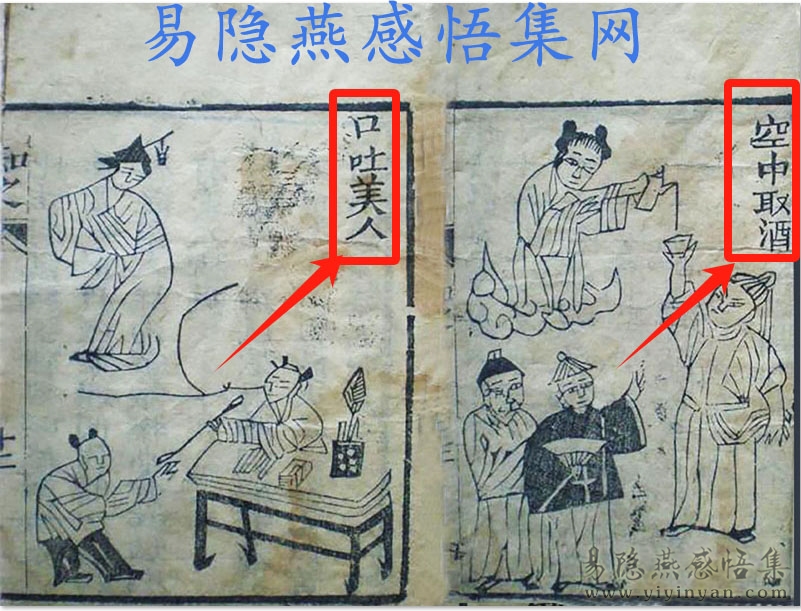 易隐燕感悟集网
空中取酒
口吐美人
易隐燕感悟集
www.yiyinyan.com